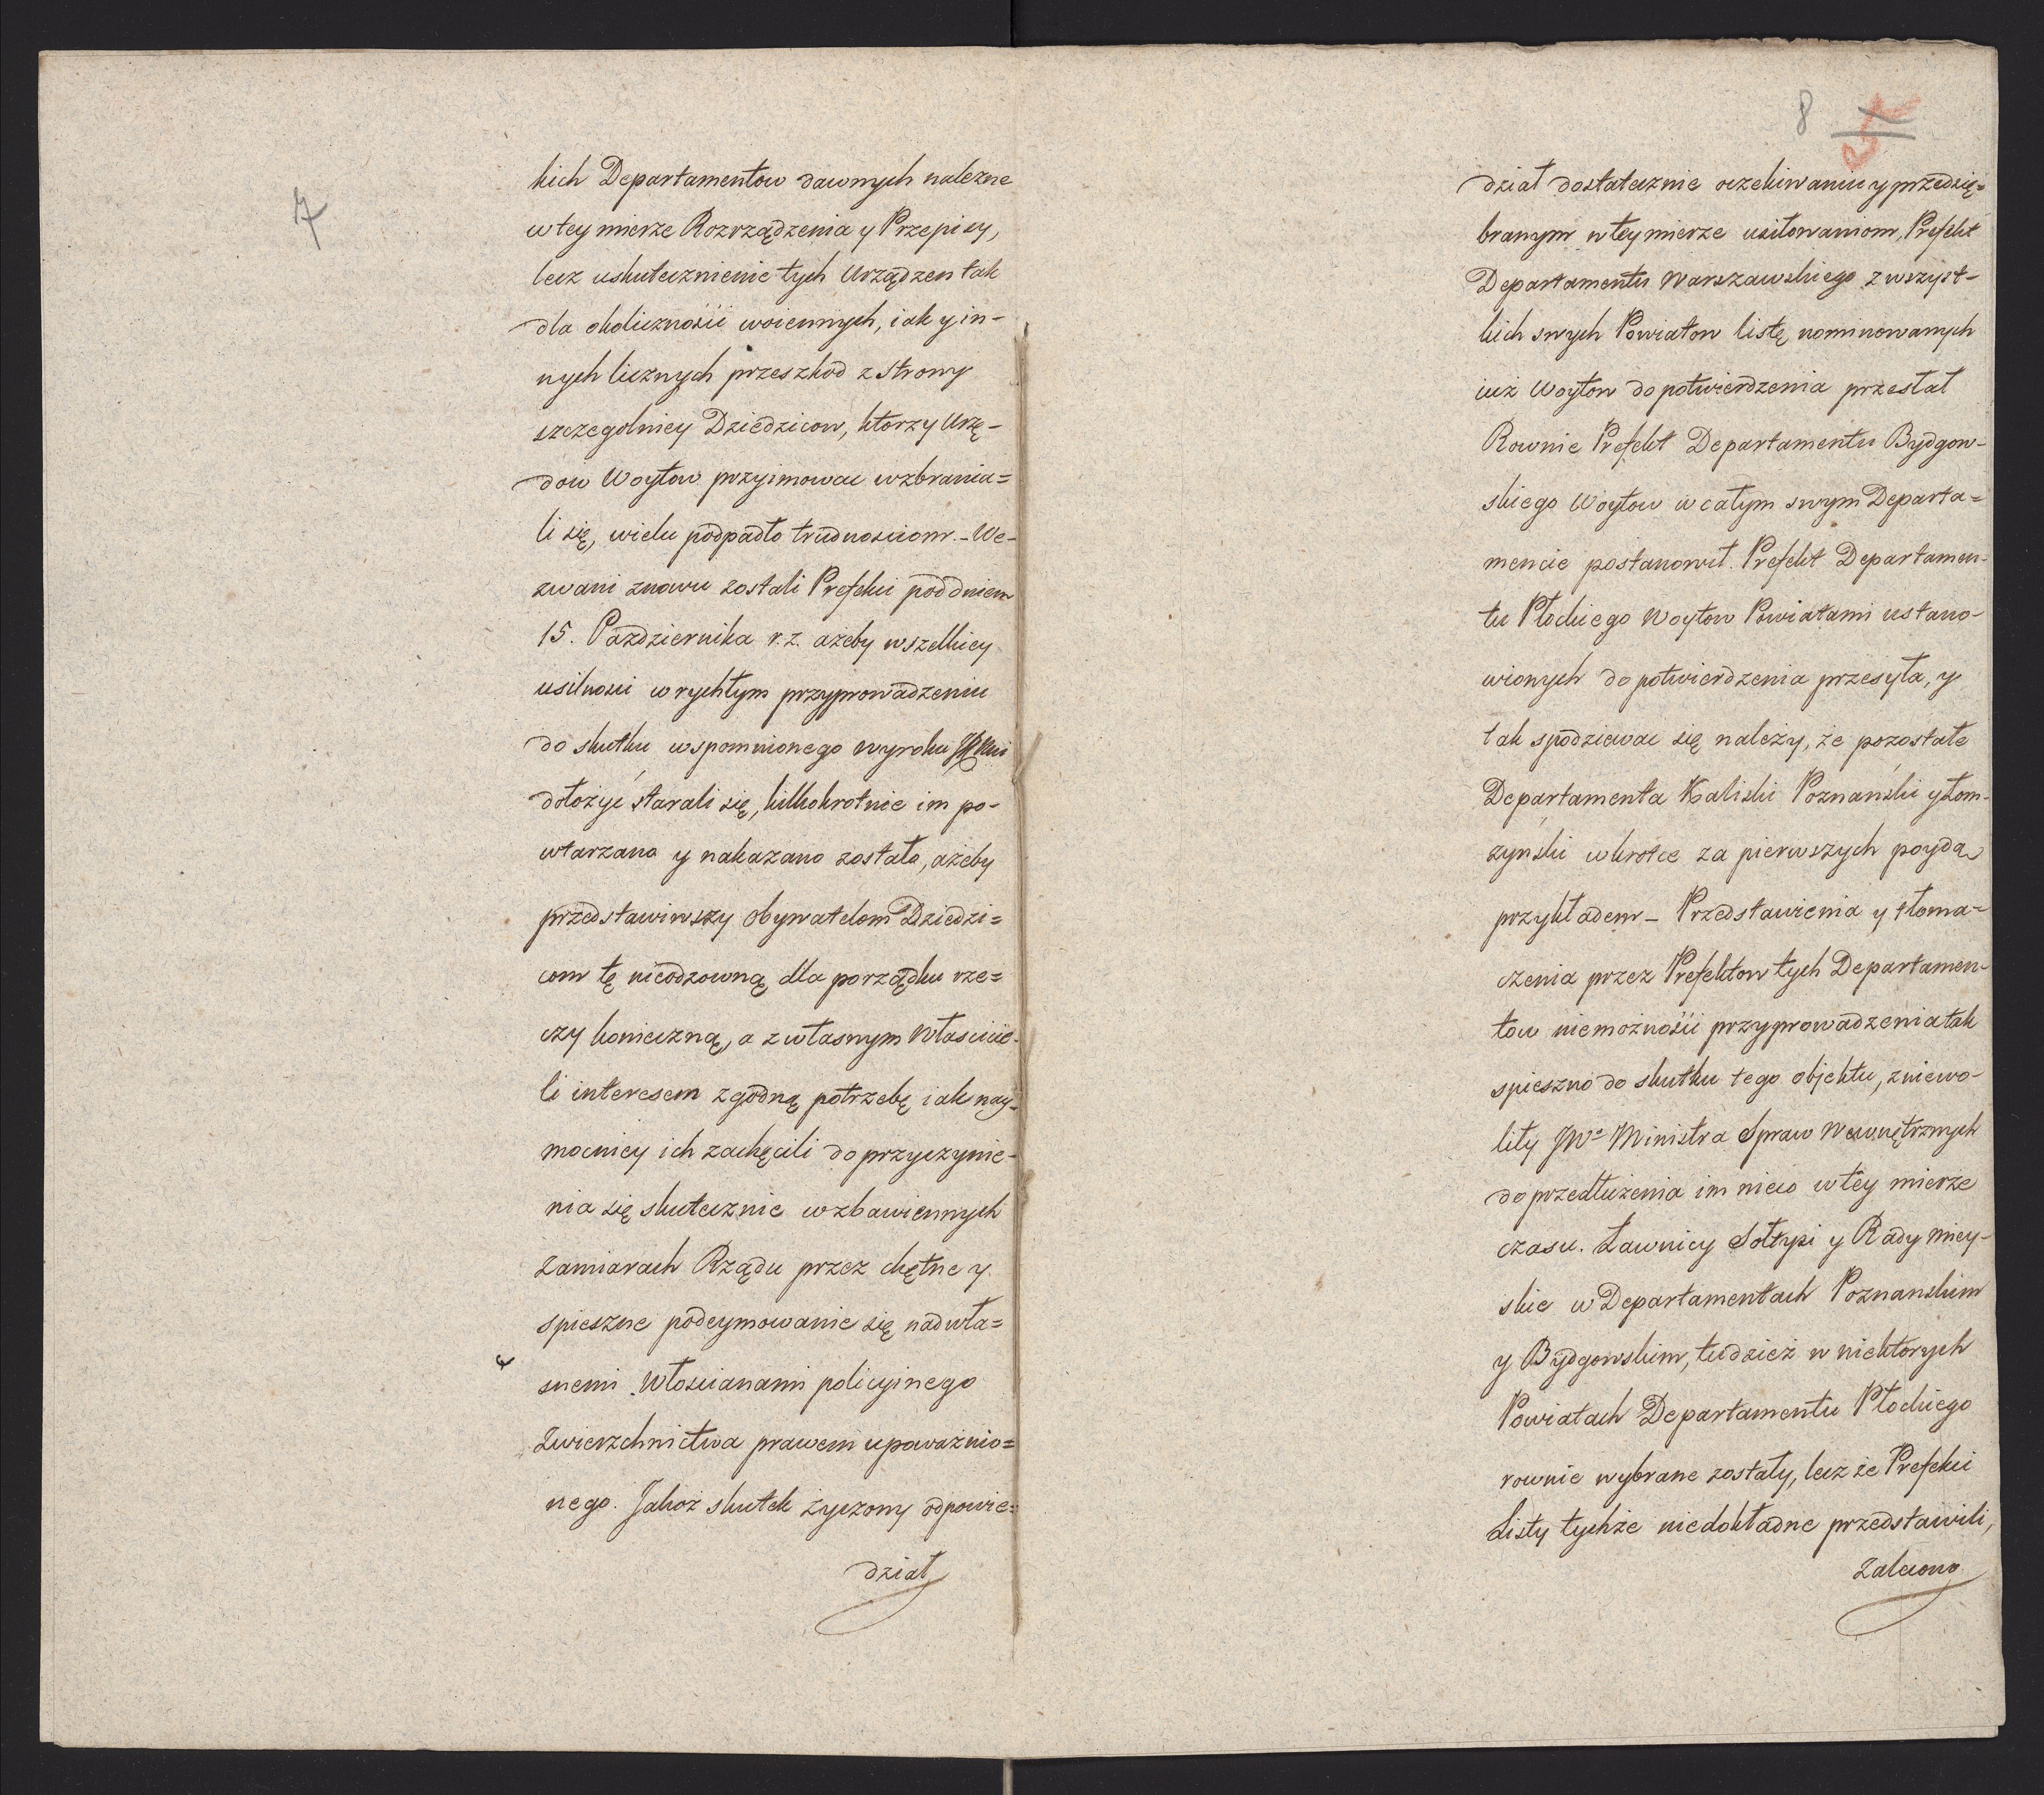 7
kich Departamentow dawnych nalezne
w tey mierze Rozrządzenia y Przepisy,
lecz uskutecznienie tych Urządzen tak
dla okolicznosci woiennych, iak y in-
nych licznych przeszkod z strony
szczegolniey Dziedzicow, ktorzy Urzę-
dow Woytow przyimowac wzbrania=
li się, wielu podpadło trudnosciom. - We-
zwani znowu zostali Prefekci pod dniem
15. Pazdziernika r. z. ażeby wszelkiey
usilnosci w rychłym przyprowadzeniu
do skutku wspomnionego wyroku
dołożyć starali się, kilkokrotnie im po-
wtarzano y nakazano zostało, ażeby
przedstawiwszy obywatelom Dziedzi=
com tę nieodzowną dla porządku rze=
czy konieczną, a z własnym Właścicie-
li interesem zgodną potrzebę iak nay=
mocniey ich zachęcili do przyczynie-
nia się skutecznie w zbawiennych
zamiarach Rządu przez chętne y
spieszne podeymowanie się nad wła=
snemi Włoscianami policyinego
zwierzchnictwa prawem upoważnio=
nego. Jakoż skutek życzony odpowie=
dział
8
dział dostatecznie oczekiwaniu y przedsię=
branym w tey mierze usiłowaniom, Prefekt
Departamentu Warszawskiego z wszyst-
kich swych Powiatow listę nominowanych
iuż Woytow do potwierdzenia przesłał
Rownie Prefekt Departamentu Bydgow-
skiego Woytow w całym swym Departa=
mencie postanowił. Prefekt Departamen-
tu Płockiego Woytow Powiatami ustano-
wionych do potwierdzenia przesyła, y
tak spodziewac się należy, że pozostałe
Departamenta Kaliski Poznański y Łom-
zyński wkrotce za pierwszych poyda
przykładem - Przedstawienia y tłoma=
czenia przez Prefektow tych Departamen-
tow niemożności przyprowadzenia tak
spieszno do skutku tego objektu, zniewo-
liły JWo Ministra Spraw Wewnętrznych
do przedłużenia im nieco w tey mierze
czasu. Ławnicy Sołtysi y Rady miey-
skie w Departamentach Poznanskim
y Bydgowskim, tudzież w niektorych
Powiatach Departamentu Płockiego
rownie wybrane zostały, lecz że Prefekci
Listy tychże niedokładne przedstawili,
Zalecono